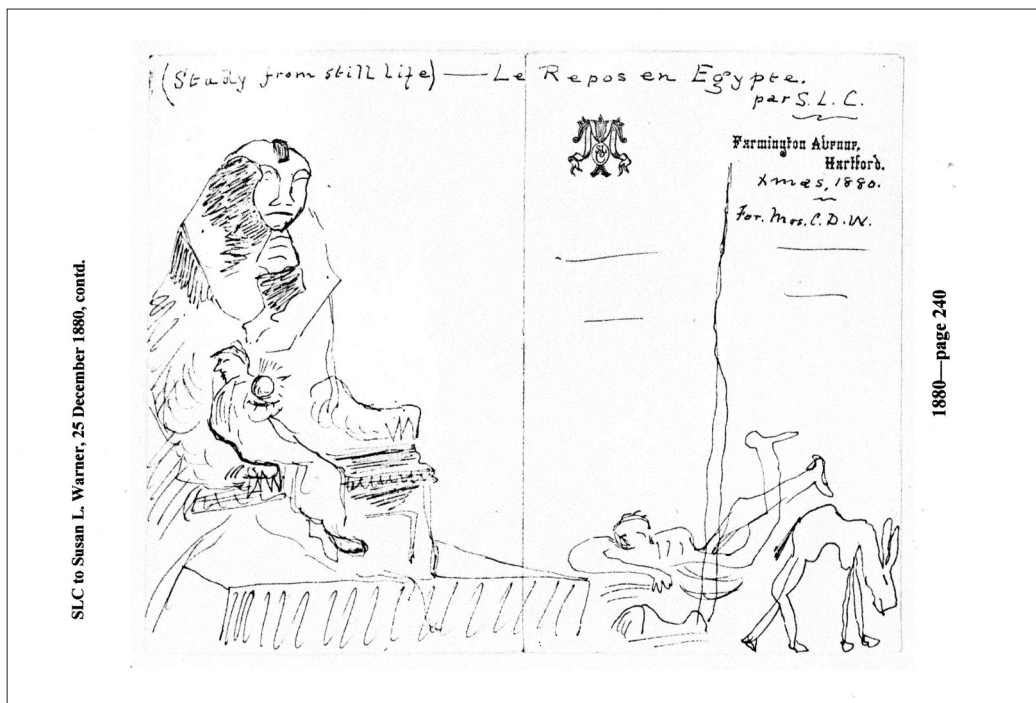 SLC to Susan L. Warner, 25 December 1880, contd.
(Study from still life) — Le Repos en Egypte.
par S. L. C.
Farmington Avenue,
Hartford.
Xmas, 1880.
For. Mrs. C. D. W.
1880—page 240